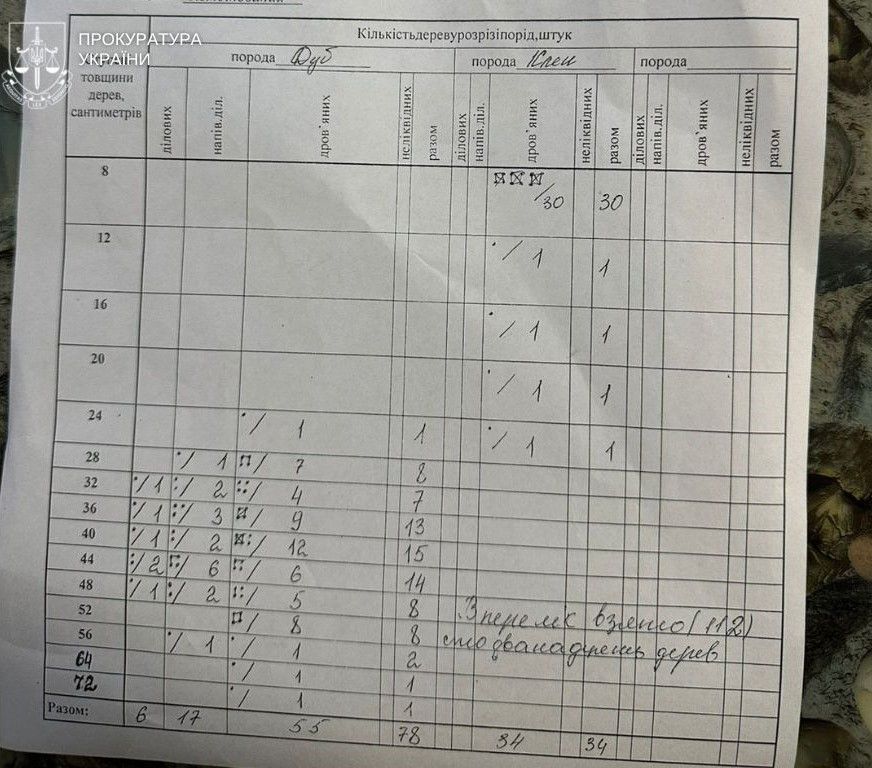 ПРОКУРАТУРА
УКРАЇНИ
Кількістьдеревурозрізіпорід,штук
порода Дуб порода Клен порода
товщини
дерев,
сантиметрів
ділових напів.діл. дров'яних неліквідних разом ділових напів.діл. дров'яних неліквідних разом ділових напів.діл. дров'яних неліквідних разом
8 /30 30
12 / 1 1
16 / 1 1
20 / 1 1
24 / 1 1 / 1 1
28 / 1 / 7 8
32 / 1 / 2 / 4 7
36 / 1 / 3 / 9 13
40 / 1 / 2 / 12 15
44 / 2 / 6 / 6 14
48 / 1 / 2 / 5 8
52 / 8 8
56 / 1 / 1 2
64 / 1 1
72 / 1 1
взято (112)
сто дванадцять дерев
Разом: 6 17 55 78 34 34